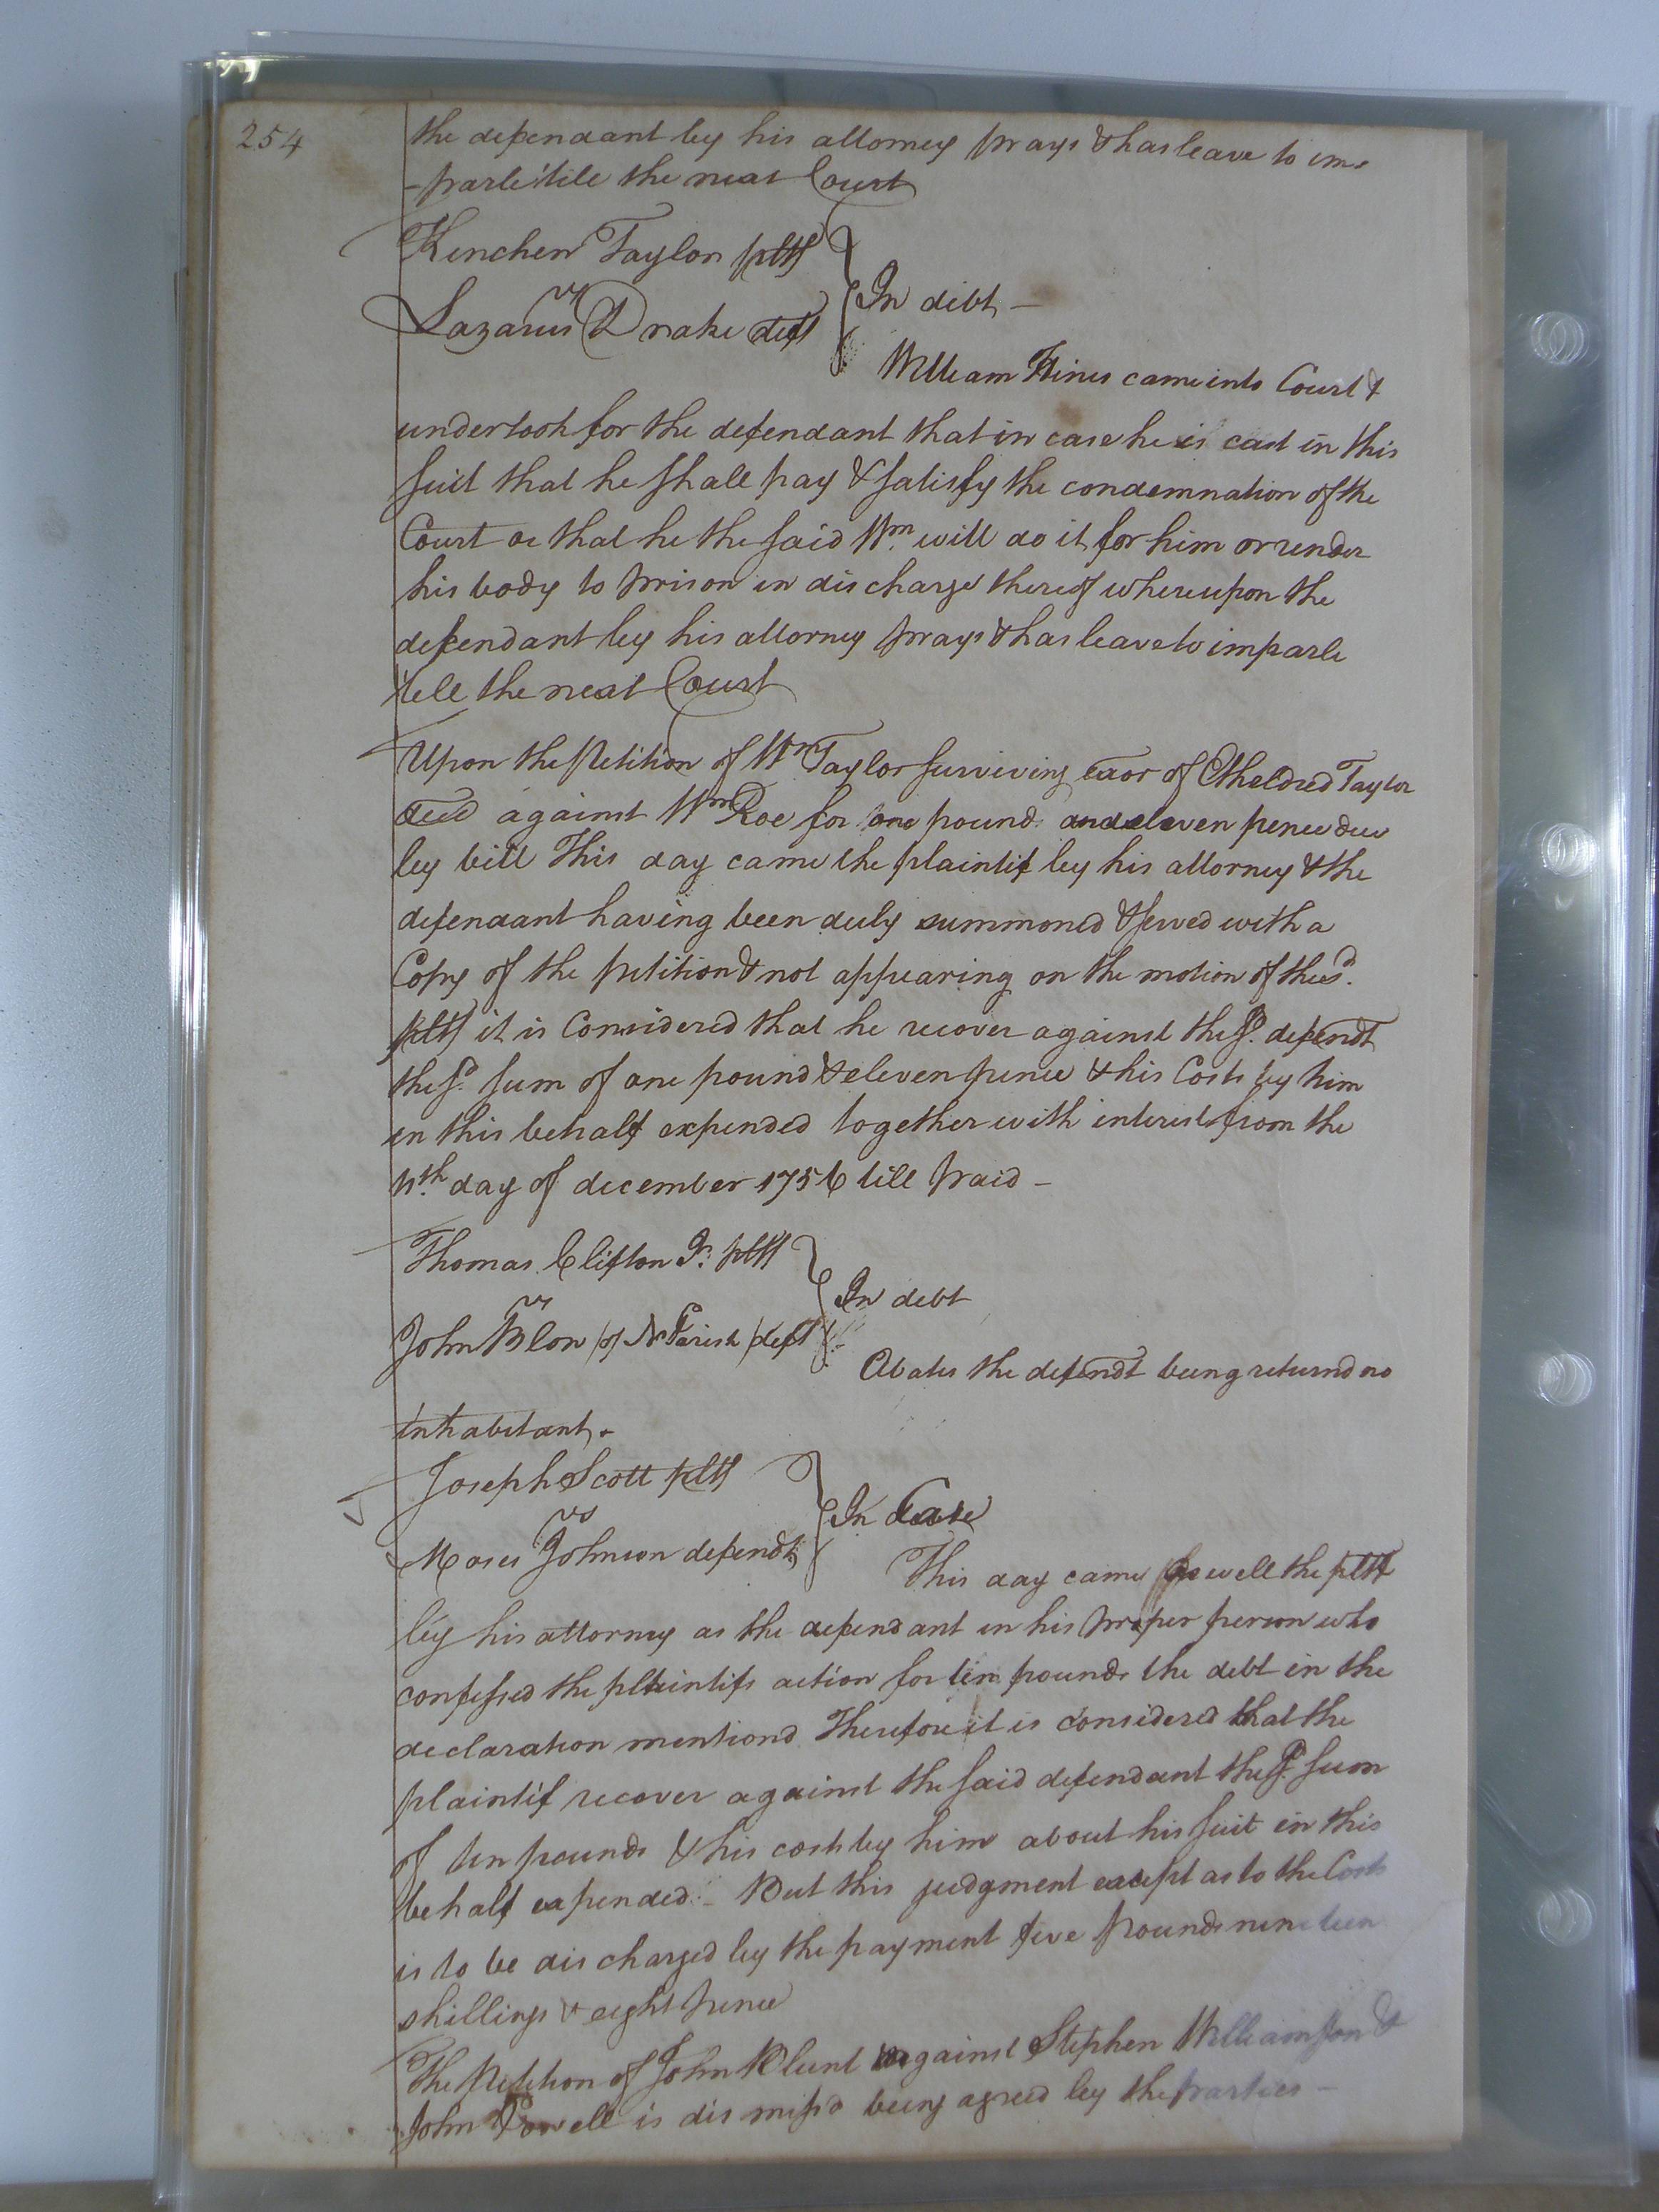 254
the defendant by his attorney prays & has leave to im-
-parle till the next Court
Kinchen Taylor pltf
vs
In debt -
Lazarus Drake deft
William Hines came into Court &
undertook for the defendant that in case he is cast in this
suit that he shall pay & satisfy the condemnation of the
Court or that he the said Wm. will do it for him or render
his body to prison in discharge thereof whereupon the
defendant by his attorney prays & has leave to imparle
till the next Court
Upon the Petition of Wm Taylor surviving exor of Etheldred Taylor
decd against Wm Roe for one pound and eleven pence due
by bill This day came the plaintif by his attorney & the
defendant having been duly summoned & served with a
Copy of the petition & not appearing on the motion of the sd.
pltf it is Considered that he recover against the sd. defendt
the sd. sum of one pound & eleven pence & his Costs by him
in this behalf expended together with interest from the
11th. day of december 1756 till paid -
Thomas Clifton Jr. pltf
vs
In debt
John Blow (of N Parish) deft
Abates the defendt being returnd no
inhabitant.
Joseph Scott pltf
vs
In Case
Moses Johnson defendt
This day came as well the pltf
by his attorney as the defendant in his proper person who
confessed the plaintifs action for ten pounds the debt in the
declaration mentiond Therefore it is considered that the
plaintif recover against the said defendant the sd. sum
of ten pounds & his costs by him about his suit in this
behalf expended. - But this judgment except as to the Costs
is to be discharged by the payment five pounds nineteen
shillings & eight pence
The Petition of John Blunt against Stephen Williamson &
John Powell is dismissd being agreed by the parties -